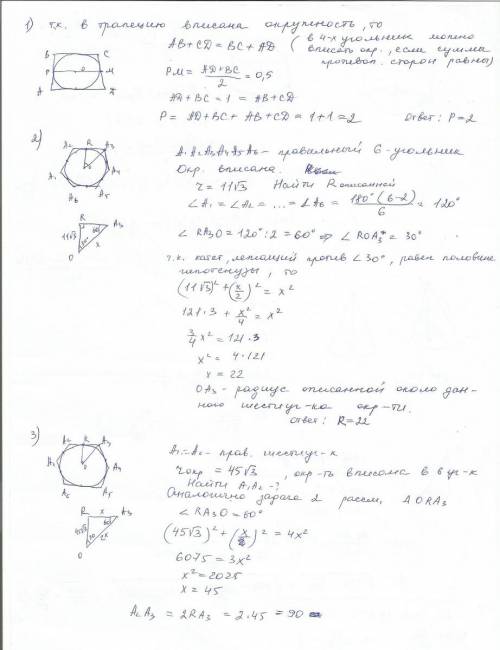 1) т.к. в трапецию вписана окружность, то
AB+CD = BC+AD ( в 4-х угольник можно
вписать окр., если сумма
противоп. сторон равны)
B C
P O M
A D
PM = (AD+BC)/2 = 0,5
AD+BC = 1 = AB+CD
P = AD+BC + AB+CD = 1+1 = 2 Ответ: P=2
2)
A2 R A3
A1 O A4
A6 A5
A1A2A3A4A5A6 – правильный 6-угольник
Окр. вписана.
r = 11√3 Найти Rописанной
∠A1 = ∠A2 = ... = ∠A6 = 180°(6-2)/6 = 120°
R A3
11√3 60°
30° x
O
∠RA3O = 120°:2 = 60° ⇒ ∠ROA3 = 30°
т.к. катет, лежащий против ∠30°, равен половине
гипотенузы, то
(11√3)² + (x/2)² = x²
121·3 + x²/4 = x²
3/4 x² = 121·3
x² = 4·121
x = 22
OA3 – радиус описанной около дан-
ного шестиуг-ка окр-ти.
Ответ: R=22
3)
A2 R A3
A1 O A4
A6 A5
A1...A6 – прав. шестиуг-к
rокр = 45√3, окр-ть вписана в 6уг-к
Найти A1A2 -?
Аналогично задаче 2 рассм. Δ ORA3
R x A3
45√3 60°
30 2x
O
∠RA3O = 60°
(45√3)² + (x)² = 4x²
6075 = 3x²
x² = 2025
x = 45
A2A3 = 2RA3 = 2·45 = 90